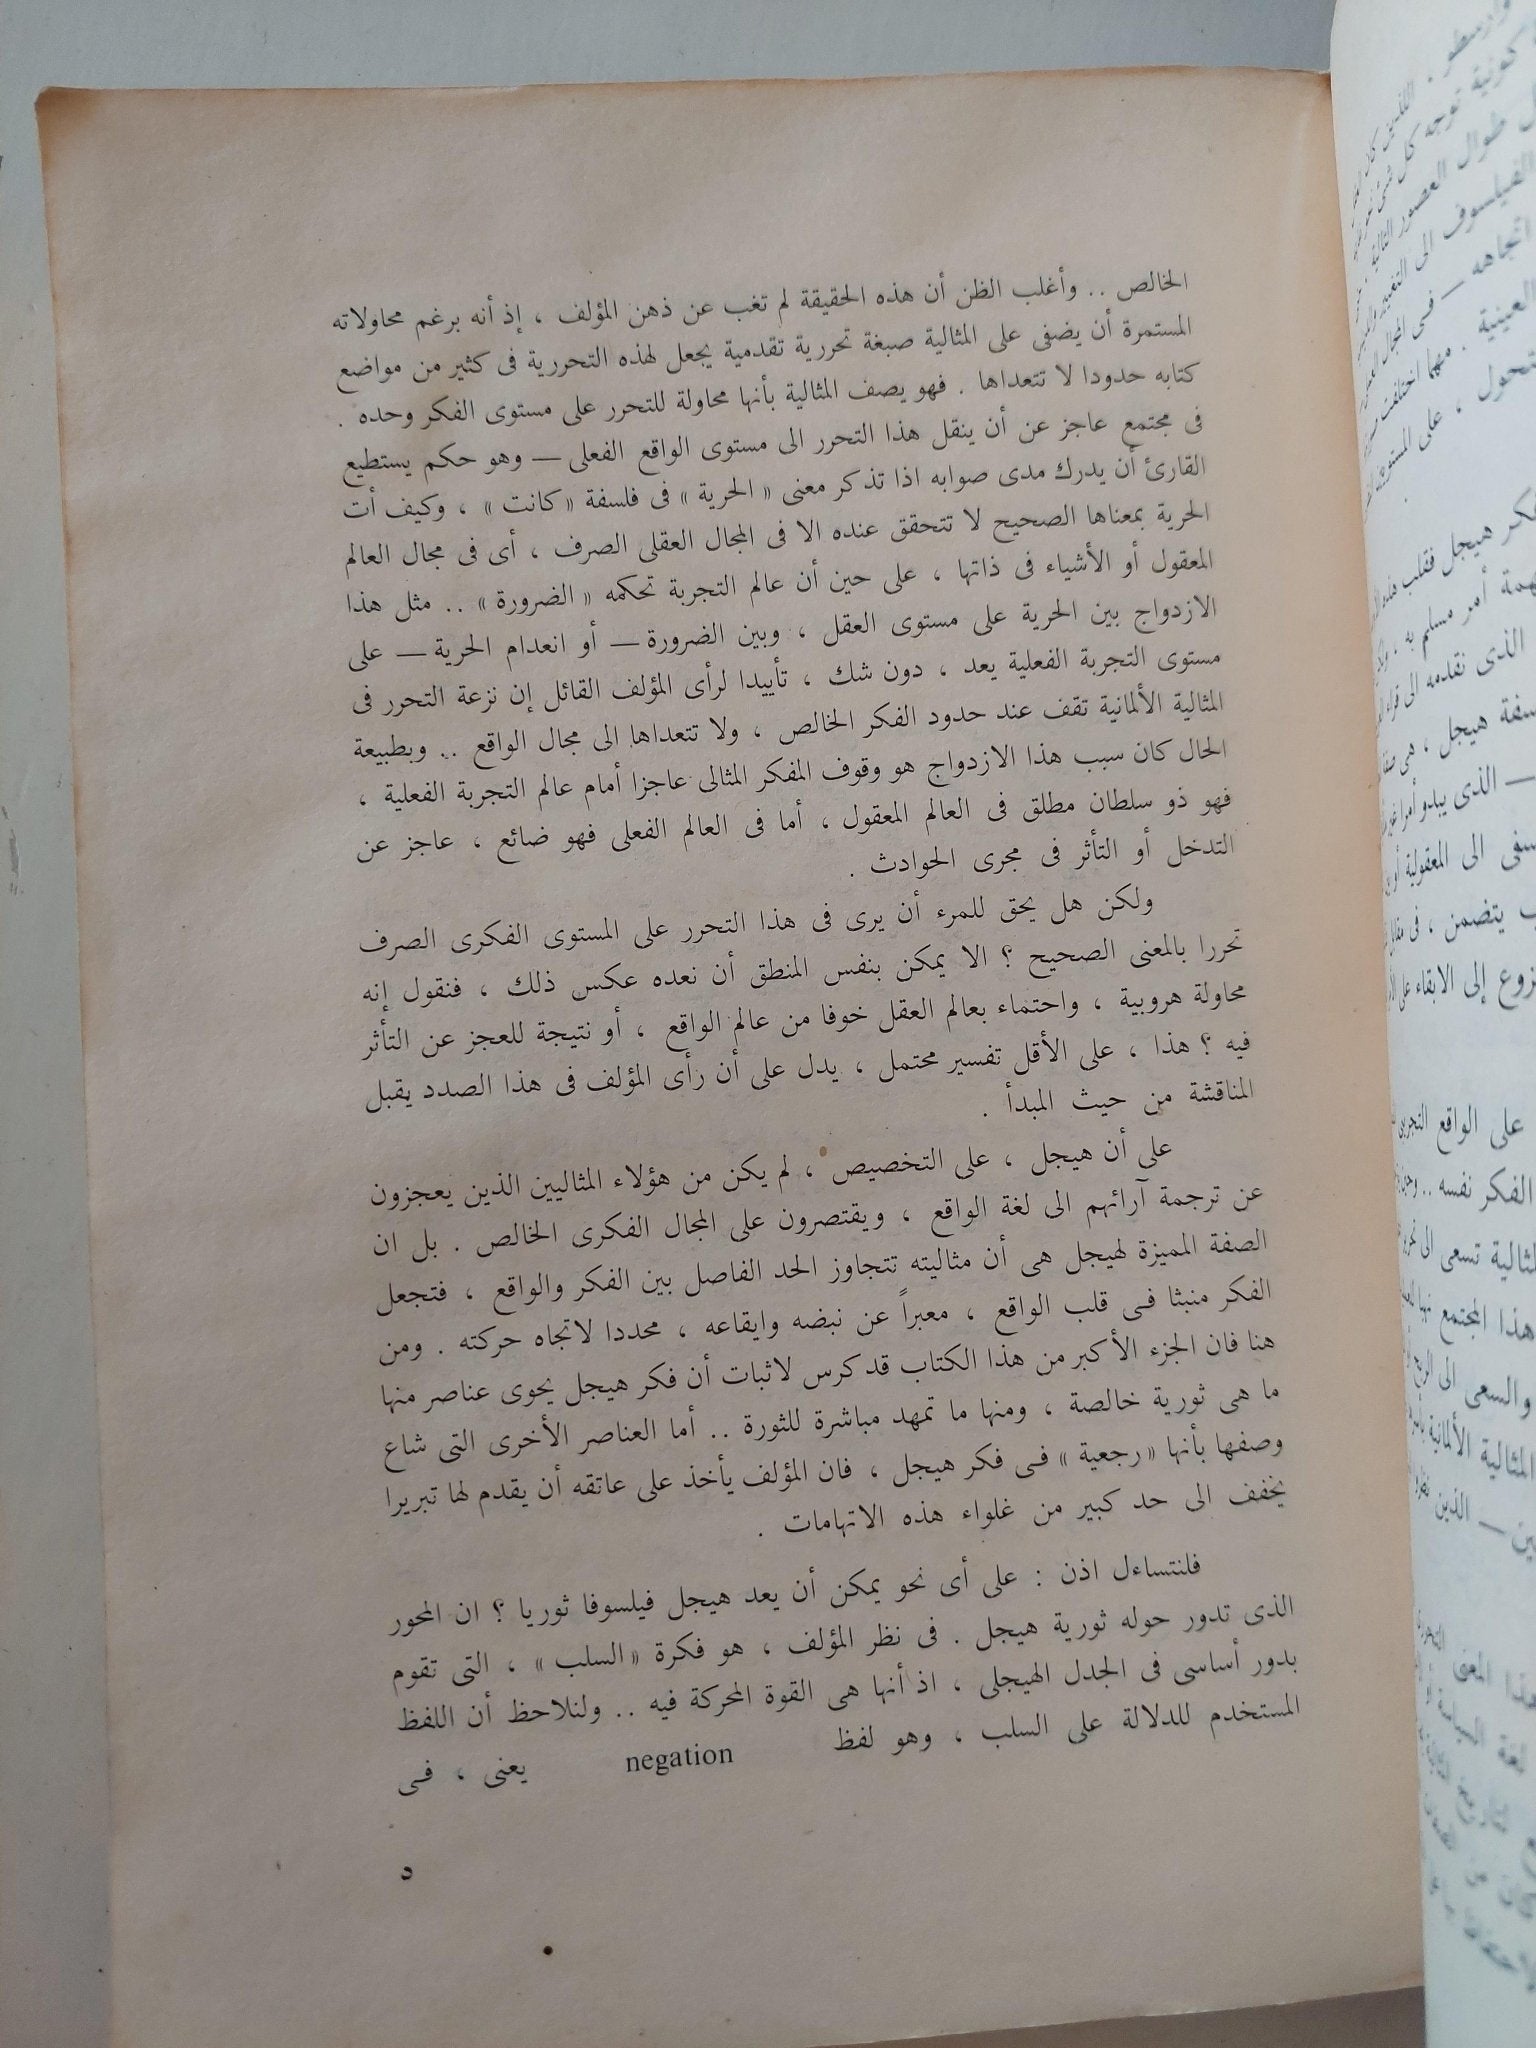 الخالص .. وأغلب الظن أن هذه الحقيقة لم تغب عن ذهن المؤلف ، إذ أنه برغم محاولاته
المستمرة أن يضفى على المثالية صبغة تحررية تقدمية يجعل لهذه التحررية فى كثير من مواضع
كتابه حدودا لا تتعداها . فهو يصف المثالية بأنها محاولة للتحرر على مستوى الفكر وحده .
فى مجتمع عاجز عن أن ينقل هذا التحرر الى مستوى الواقع الفعلى — وهو حكم يستطيع
القارئ أن يدرك مدى صوابه اذا تذكر معنى «الحرية» فى فلسفة «كانت» ، وكيف أت
الحرية بمعناها الصحيح لا تتحقق عنده الا فى المجال العقلى الصرف ، أى فى مجال العالم
المعقول أو الأشياء فى ذاتها ، على حين أن عالم التجربة تحكمه «الضرورة» .. مثل هذا
الازدواج بين الحرية على مستوى العقل ، وبين الضرورة — أو انعدام الحرية — على
مستوى التجربة الفعلية يعد ، دون شك ، تأييدا لرأى المؤلف القائل إن نزعة التحرر فى
المثالية الألمانية تقف عند حدود الفكر الخالص ، ولا تتعداها الى مجال الواقع .. وبطبيعة
الحال كان سبب هذا الازدواج هو وقوف المفكر المثالى عاجزا أمام عالم التجربة الفعلية ،
فهو ذو سلطان مطلق فى العالم المعقول ، أما فى العالم الفعلى فهو ضائع ، عاجز عن
التدخل أو التأثر فى مجرى الحوادث .
ولكن هل يحق للمرء أن يرى فى هذا التحرر على المستوى الفكرى الصرف
تحررا بالمعنى الصحيح ؟ الا يمكن بنفس المنطق أن نعده عكس ذلك ، فنقول إنه
محاولة هروبية ، واحتماء بعالم العقل خوفا من عالم الواقع ، أو نتيجة للعجز عن التأثر
فيه ؟ هذا ، على الأقل تفسير محتمل ، يدل على أن رأى المؤلف فى هذا الصدد يقبل
المناقشة من حيث المبدأ .
على أن هيجل ، على التخصيص ، لم يكن من هؤلاء المثاليين الذين يعجزون
عن ترجمة آرائهم الى لغة الواقع ، ويقتصرون على المجال الفكرى الخالص . بل ان
الصفة المميزة لهيجل هى أن مثاليته تتجاوز الحد الفاصل بين الفكر والواقع ، فتجعل
الفكر منبثا فى قلب الواقع ، معبراً عن نبضه وايقاعه ، محددا لاتجاه حركته . ومن
هنا فان الجزء الأكبر من هذا الكتاب قد كرس لاثبات أن فكر هيجل يحوى عناصر منها
ما هى ثورية خالصة ، ومنها ما تمهد مباشرة للثورة .. أما العناصر الأخرى التى شاع
وصفها بأنها «رجعية» فى فكر هيجل ، فان المؤلف يأخذ على عاتقه أن يقدم لها تبريرا
يخفف الى حد كبير من غلواء هذه الاتهامات .
فلنتساءل اذن : على أى نحو يمكن أن يعد هيجل فيلسوفا ثوريا ؟ ان المحور
الذى تدور حوله ثورية هيجل . فى نظر المؤلف ، هو فكرة «السلب» ، التى تقوم
بدور أساسى فى الجدل الهيجلى ، اذ أنها هى القوة المحركة فيه .. ولنلاحظ أن اللفظ
المستخدم للدلالة على السلب ، وهو لفظ negation يعنى ، فى
د
طوال العصور التالية
الفيلسوف الى
اتجاهه — فى المجال
العينية . مهما اختلفت
، على المستوى
هيجل فقلب
أمر مسلم به ،
الذى نقدمه الى قراء
هيجل ، هى
— الذى يبدو أمرا
الى المعقولية
يتضمن ، فى
إلى الابقاء على
على الواقع التجريبى
الفكر نفسه ..
تسعى الى
هذا المجتمع
والسعى الى
المثالية الألمانية
— الذين